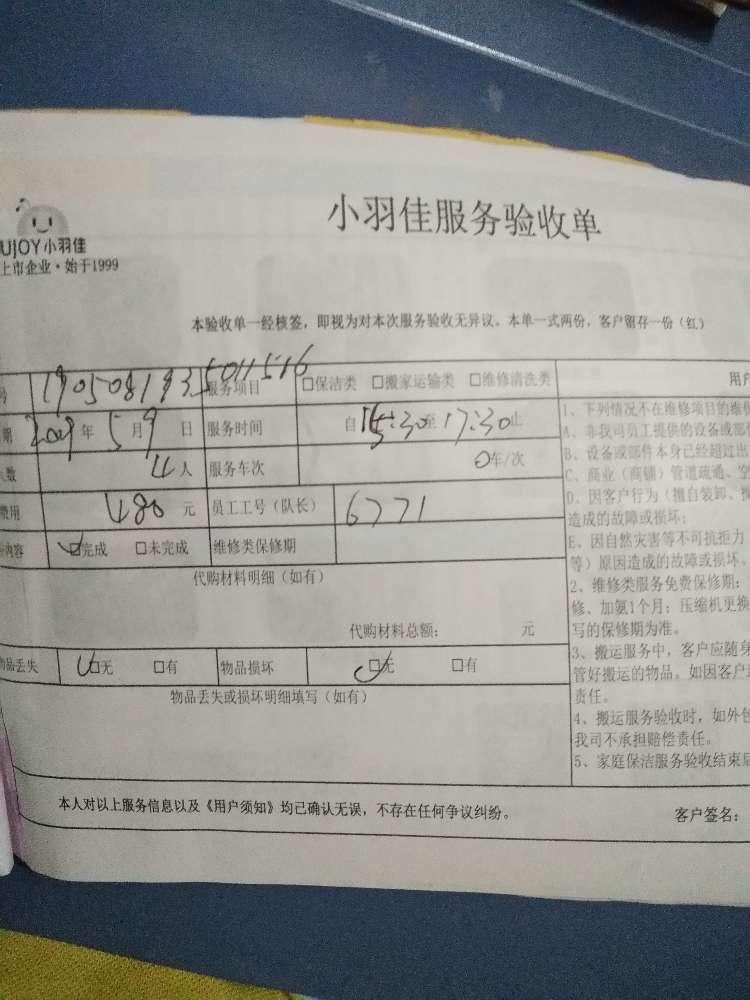 小羽佳服务验收单
UJOY小羽佳
上市企业·始于1999
本验收单一经核签，即视为对本次服务验收无异议。本单一式两份，客户留存一份（红）
号 1905081935011516 服务项目 □保洁类 □搬家运输类 □维修清洗类
期 2019年5月9日 服务时间 自15:30至17:30止
人数 4人 服务车次 0车/次
费用 480元 员工工号（队长） 6771
内容 ☑完成 □未完成 维修类保修期
代购材料明细（如有）
代购材料总额： 元
物品丢失 ☑无 □有 物品损坏 ☑无 □有
物品丢失或损坏明细填写（如有）
本人对以上服务信息以及《用户须知》均已确认无误，不存在任何争议纠纷。
客户签名：
用户
1、下列情况不在维修项目的维修
A、非我司员工提供的设备或部件
B、设备或部件本身已经超过出
C、商业（商铺）管道疏通、空
D、因客户行为（擅自装卸、
造成的故障或损坏；
E、因自然灾害等不可抗拒力
等）原因造成的故障或损坏。
2、维修类服务免费保修期：
修、加氨1个月；压缩机更换
写的保修期为准。
3、搬运服务中，客户应随身
管好搬运的物品。如因客户
责任。
4、搬运服务验收时，如外包
我司不承担赔偿责任。
5、家庭保洁服务验收结束后